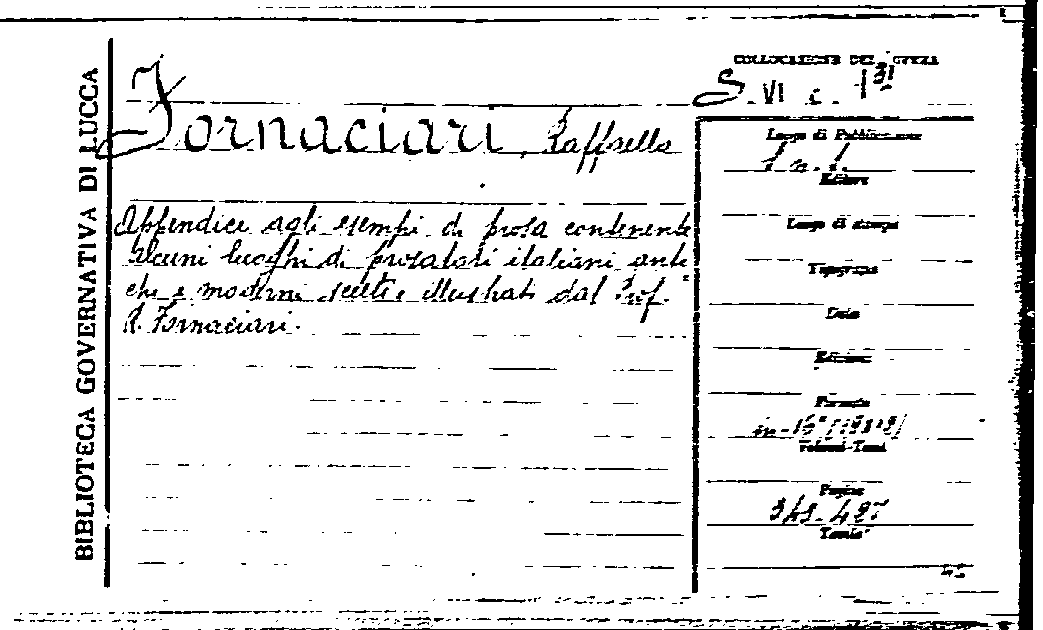 BIBLIOTECA GOVERNATIVA DI LUCCA
Fornaciari, Raffaello
Appendice agli esempi di prosa contenente
alcuni luoghi di prosatori italiani anti
chi e moderni scelti e illustrati dal Prof.
R. Fornaciari.
COLLOCAZIONE DELL'OPERA
S. VI c. 131
Luogo di Pubblicazione
s. n. t.
Editore
Luogo di stampa
Tipografia
Data
Edizione
Formato
in-16°
Volumi-Tomi
Pagine
427
Tavole